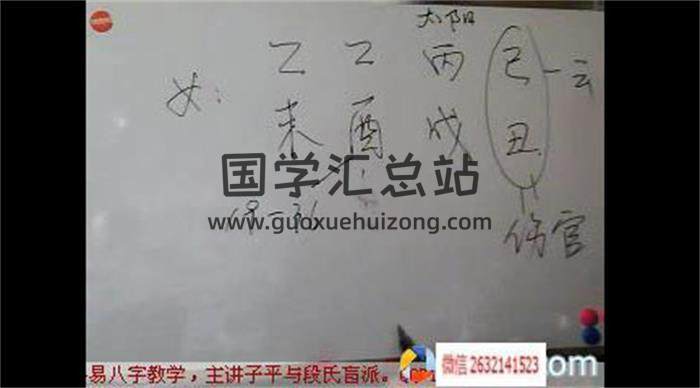 太阳
女: 乙 乙 丙 己 — 云
未 酉 戌 丑
国学汇总站
www.guoxuehuizong.com
伤官
易八字教学，主讲子平与段氏盲派。
微信 2632141523
om